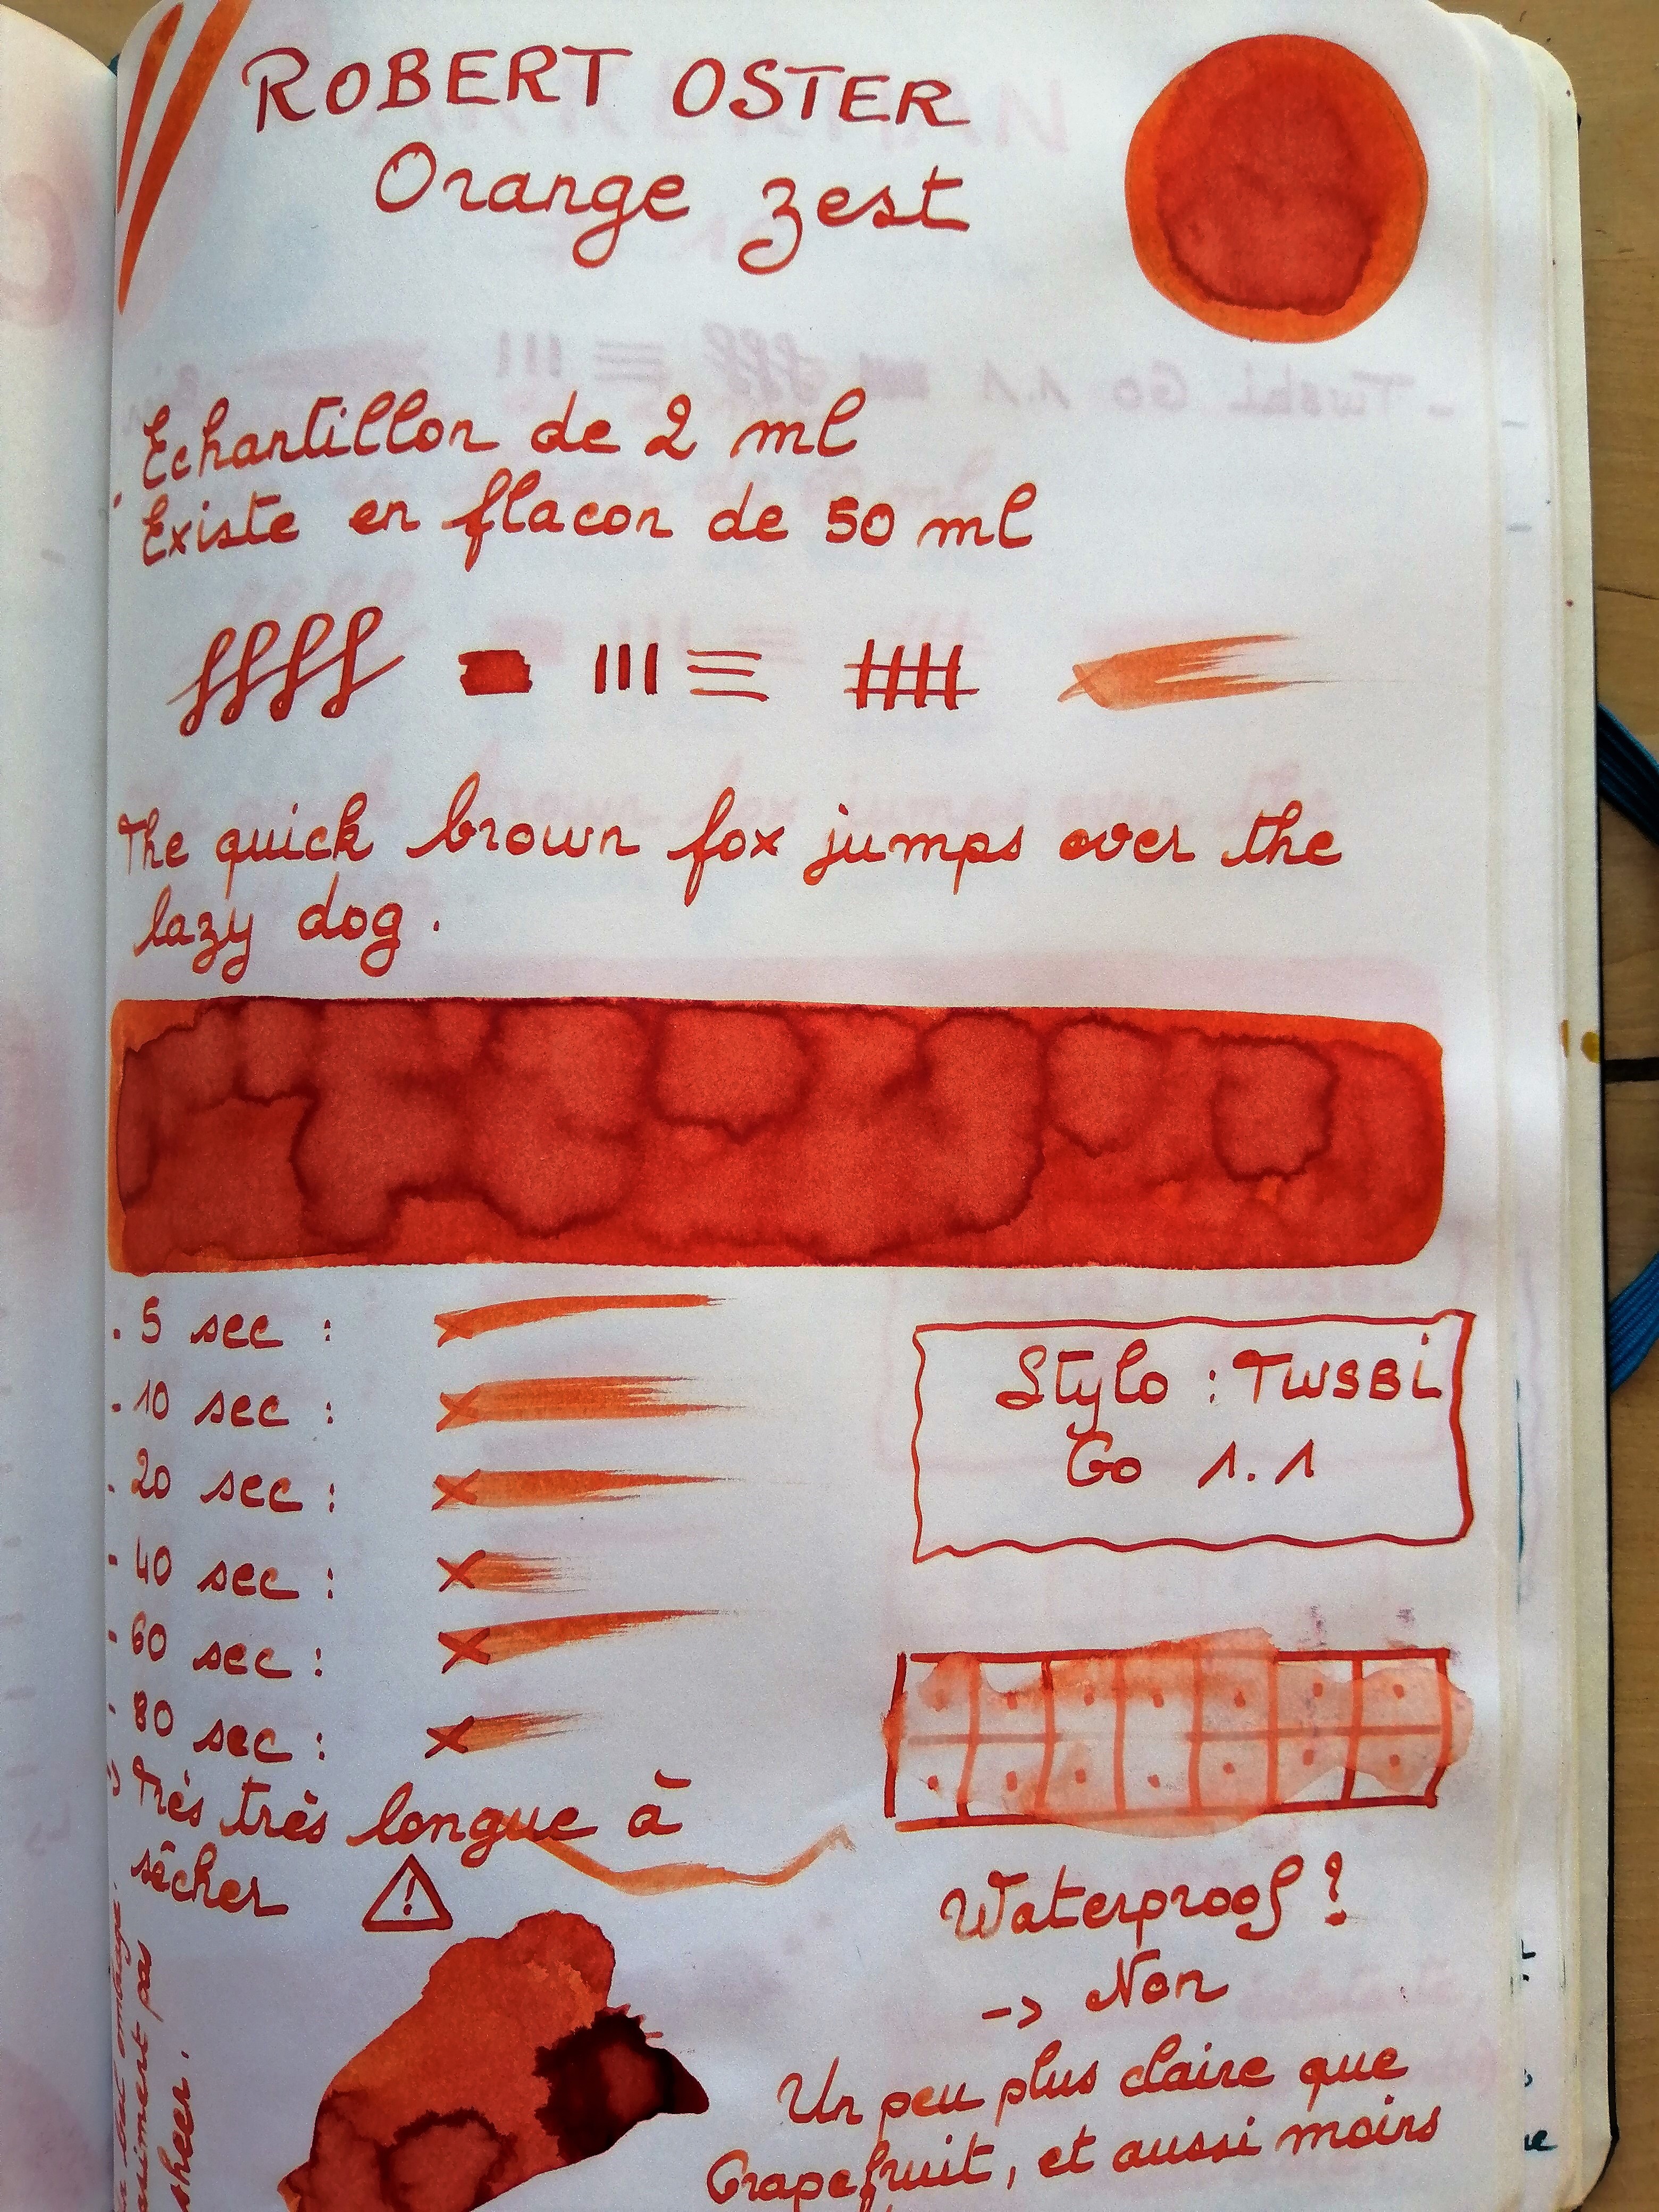 ROBERT OSTER
Orange zest
Echantillon de 2 ml
Existe en flacon de 50 ml
The quick brown fox jumps over the
lazy dog.
. 5 sec :
- 10 sec :
- 20 sec :
- 40 sec :
- 60 sec :
- 80 sec :
Très très longue à
sécher
!
Stylo : TWSBi
Go 1.1
Waterproof ?
-> Non
Un peu plus claire que
Grapefruit, et aussi moins
bel ombage.
pas
sheen.
- Twsbi Go 1.1